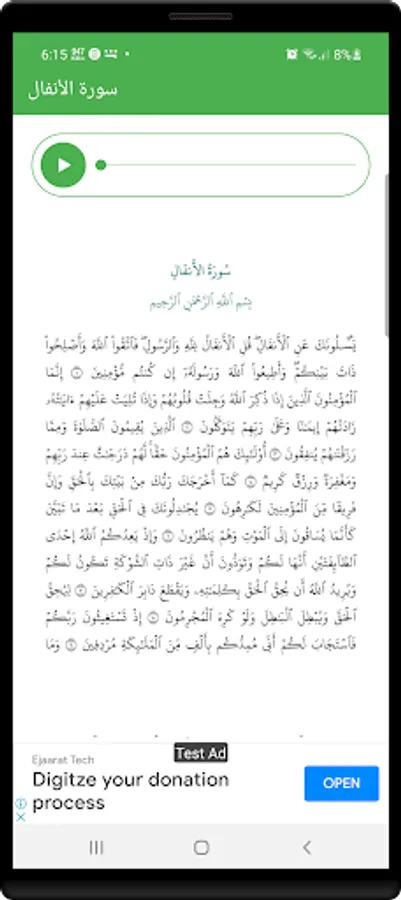 6:15
8%
سورة الأنفال
سُورَةُ الأَنفَالِ
بِسْمِ ٱللَّهِ ٱلرَّحْمَٰنِ ٱلرَّحِيمِ
يَسْـَٔلُونَكَ عَنِ ٱلْأَنفَالِ ۖ قُلِ ٱلْأَنفَالُ لِلَّهِ وَٱلرَّسُولِ ۖ فَٱتَّقُوا۟ ٱللَّهَ وَأَصْلِحُوا۟
ذَاتَ بَيْنِكُمْ ۖ وَأَطِيعُوا۟ ٱللَّهَ وَرَسُولَهُۥٓ إِن كُنتُم مُّؤْمِنِينَ ۝ إِنَّمَا
ٱلْمُؤْمِنُونَ ٱلَّذِينَ إِذَا ذُكِرَ ٱللَّهُ وَجِلَتْ قُلُوبُهُمْ وَإِذَا تُلِيَتْ عَلَيْهِمْ ءَايَٰتُهُۥ
زَادَتْهُمْ إِيمَٰنًا وَعَلَىٰ رَبِّهِمْ يَتَوَكَّلُونَ ۝ ٱلَّذِينَ يُقِيمُونَ ٱلصَّلَوٰةَ وَمِمَّا
رَزَقْنَٰهُمْ يُنفِقُونَ ۝ أُو۟لَٰٓئِكَ هُمُ ٱلْمُؤْمِنُونَ حَقًّا ۚ لَّهُمْ دَرَجَٰتٌ عِندَ رَبِّهِمْ
وَمَغْفِرَةٌ وَرِزْقٌ كَرِيمٌ ۝ كَمَآ أَخْرَجَكَ رَبُّكَ مِنۢ بَيْتِكَ بِٱلْحَقِّ وَإِنَّ
فَرِيقًا مِّنَ ٱلْمُؤْمِنِينَ لَكَٰرِهُونَ ۝ يُجَٰدِلُونَكَ فِى ٱلْحَقِّ بَعْدَ مَا تَبَيَّنَ
كَأَنَّمَا يُسَاقُونَ إِلَى ٱلْمَوْتِ وَهُمْ يَنظُرُونَ ۝ وَإِذْ يَعِدُكُمُ ٱللَّهُ إِحْدَى
ٱلطَّآئِفَتَيْنِ أَنَّهَا لَكُمْ وَتَوَدُّونَ أَنَّ غَيْرَ ذَاتِ ٱلشَّوْكَةِ تَكُونُ لَكُمْ
وَيُرِيدُ ٱللَّهُ أَن يُحِقَّ ٱلْحَقَّ بِكَلِمَٰتِهِۦ وَيَقْطَعَ دَابِرَ ٱلْكَٰفِرِينَ ۝ لِيُحِقَّ
ٱلْحَقَّ وَيُبْطِلَ ٱلْبَٰطِلَ وَلَوْ كَرِهَ ٱلْمُجْرِمُونَ ۝ إِذْ تَسْتَغِيثُونَ رَبَّكُمْ
فَٱسْتَجَابَ لَكُمْ أَنِّى مُمِدُّكُم بِأَلْفٍ مِّنَ ٱلْمَلَٰٓئِكَةِ مُرْدِفِينَ ۝ وَمَا
Test Ad
Ejaarat Tech
Digitze your donation
process
OPEN